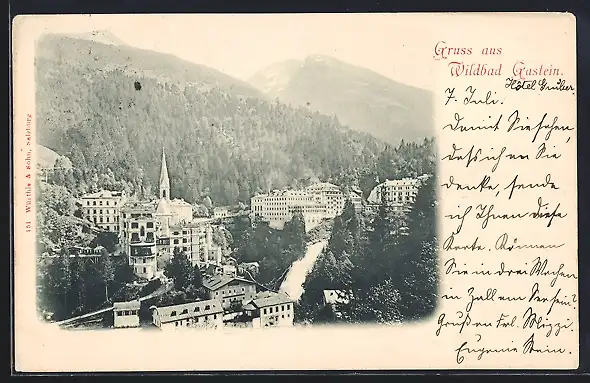 Gruss aus
Wildbad Gastein.
Hôtel Gruber.
7. Juli.
Damit Sie sehen,
dass ich an Sie
denke, sende
ich Ihnen diese
Karte. Können
Sie in drei Wochen
in Zell am See sein?
Gruß an Frl. Mizzi.
Eugenie Stein.
151 Würthle & Sohn, Salzburg